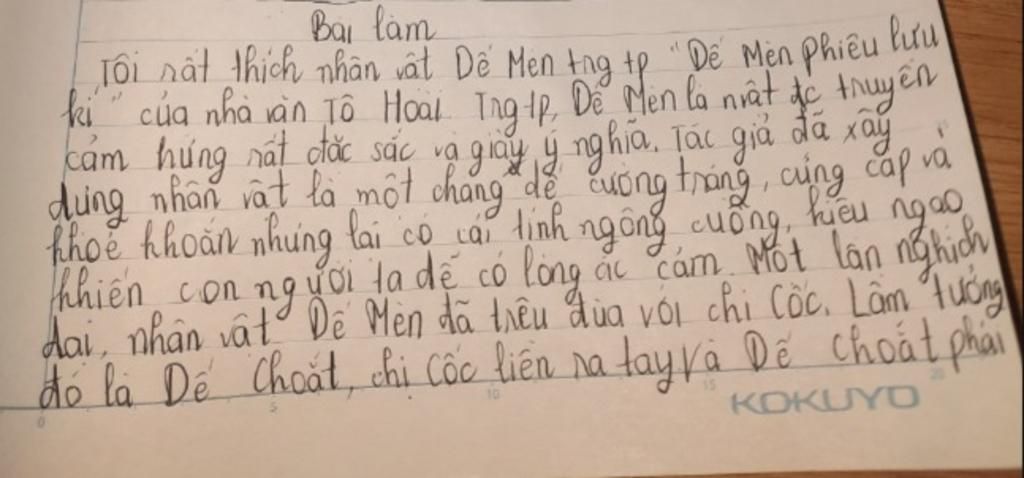 Bài làm
Tôi rất thích nhân vật Dế Mèn trg tp "Dế Mèn phiêu lưu
kí" của nhà văn Tô Hoài. Trg tp, Dế Mèn là nvật đc truyền
cảm hứng rất đặc sắc và giàu ý nghĩa. Tác giả đã xây
dựng nhân vật là một chàng dế cường tráng, cứng cáp và
khoẻ khoắn nhưng lại có cái tính ngông cuồng, kiêu ngạo
khiến con người ta dễ có lòng ác cảm. Một lần nghịch
dại, nhân vật Dế Mèn đã trêu đùa với chị Cốc. Lầm tưởng
đó là Dế Choắt, chị Cốc liền ra tay và Dế Choắt phải
0 5 10 15 20
KOKUYO